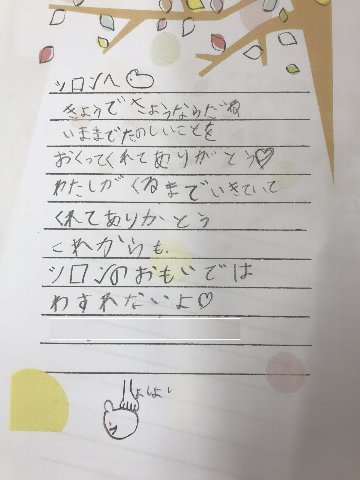 シロンへ
きょうでさようならだね
いままでたのしいことを
おくってくれてありがとう♡
わたしがくるまでいきていて
くれてありかとう
これからも
シロンのおもいでは
わすれないよ♡
よしよし